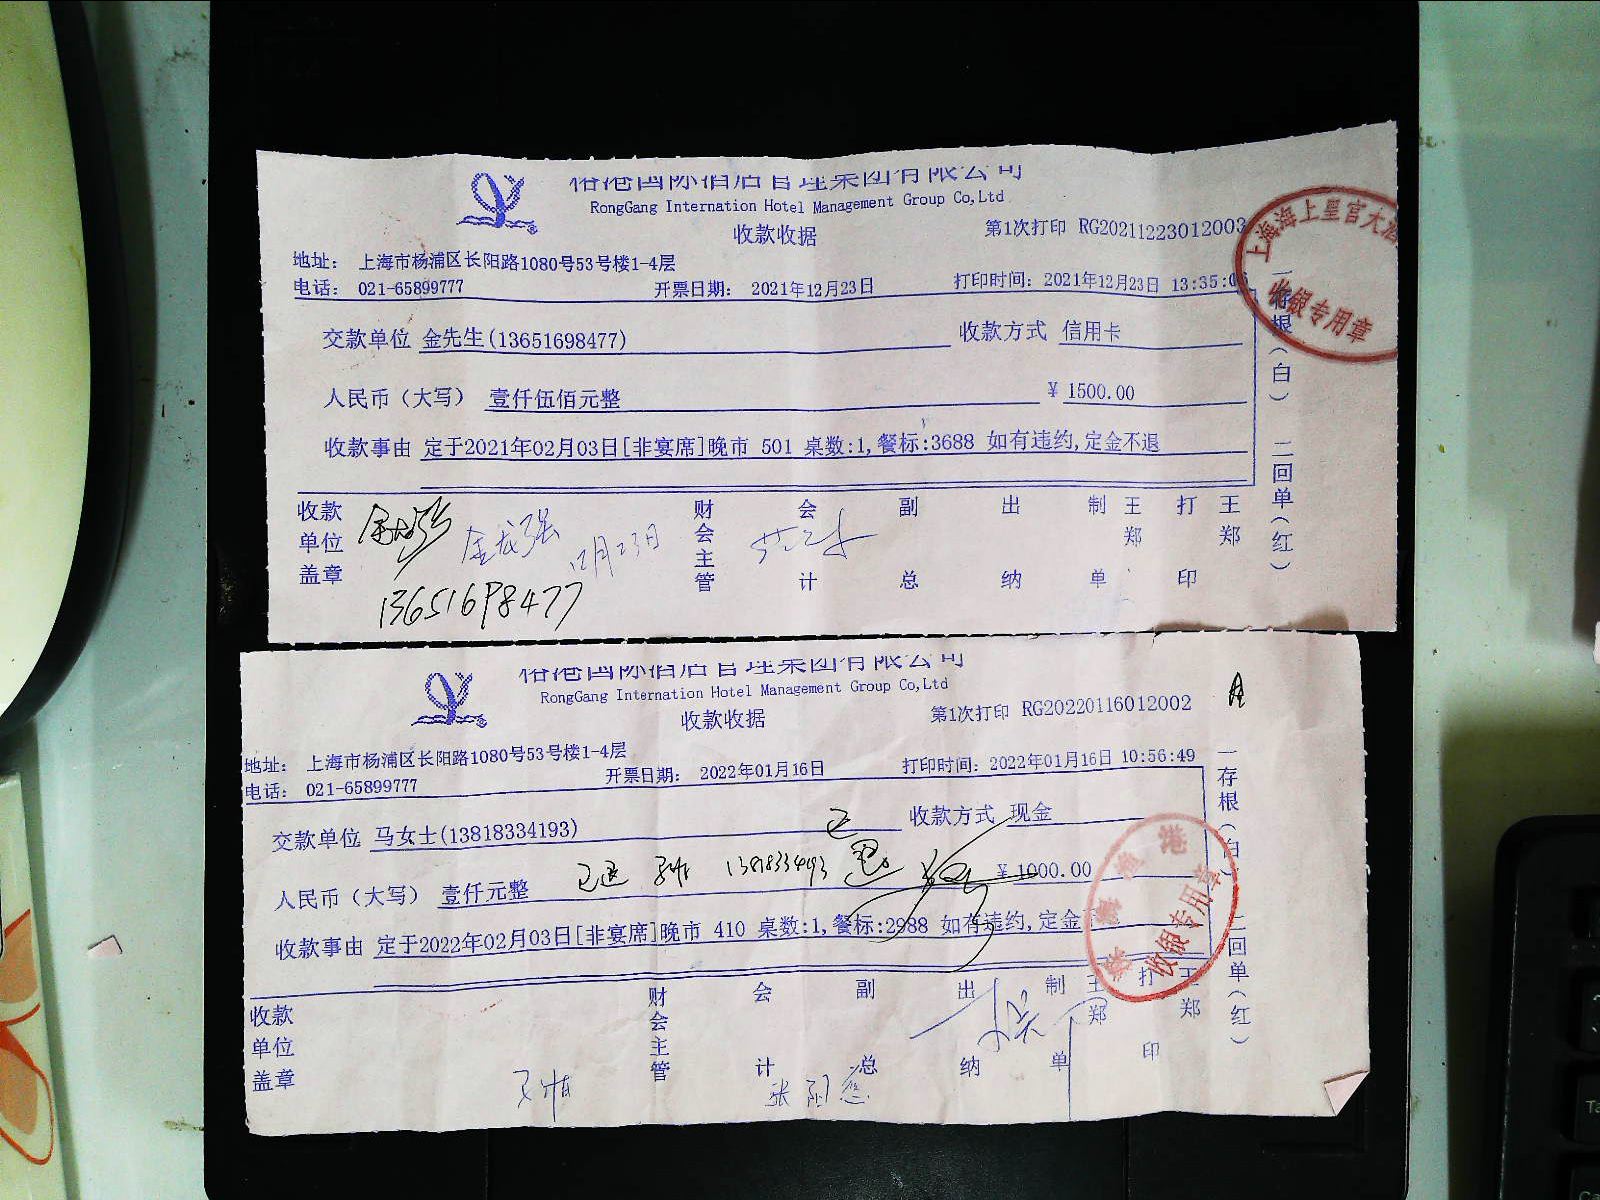 裕港国际酒店管理集团有限公司
RongGang Internation Hotel Management Group Co,Ltd
收款收据
第1次打印 RG20211223012003
地址： 上海市杨浦区长阳路1080号53号楼1-4层
电话： 021-65899777
开票日期： 2021年12月23日
打印时间：2021年12月23日 13:35:0
交款单位 金先生(13651698477)
收款方式 信用卡
人民币（大写） 壹仟伍佰元整
¥ 1500.00
收款事由 定于2021年02月03日[非宴席]晚市 501 桌数:1,餐标:3688 如有违约,定金不退
收款单位盖章
金龙强
金龙强 12月23日
13651698477
财会主管
会计
副总
出纳
制单
王郑
打印
王郑
一存根(白) 二回单(红)
上海海上皇宫大酒
收银专用章
裕港国际酒店管理集团有限公司
RongGang Internation Hotel Management Group Co,Ltd
收款收据
第1次打印 RG20220116012002
地址： 上海市杨浦区长阳路1080号53号楼1-4层
电话： 021-65899777
开票日期： 2022年01月16日
打印时间：2022年01月16日 10:56:49
交款单位 马女士(13818334193)
收款方式 现金
人民币（大写） 壹仟元整
已退
¥ 1000.00
收款事由 定于2022年02月03日[非宴席]晚市 410 桌数:1,餐标:2988 如有违约,定金
收款单位盖章
财会主管
会计
副总
出纳
制单
王郑
打印
王郑
一存根(白) 二回单(红)
收银专用章